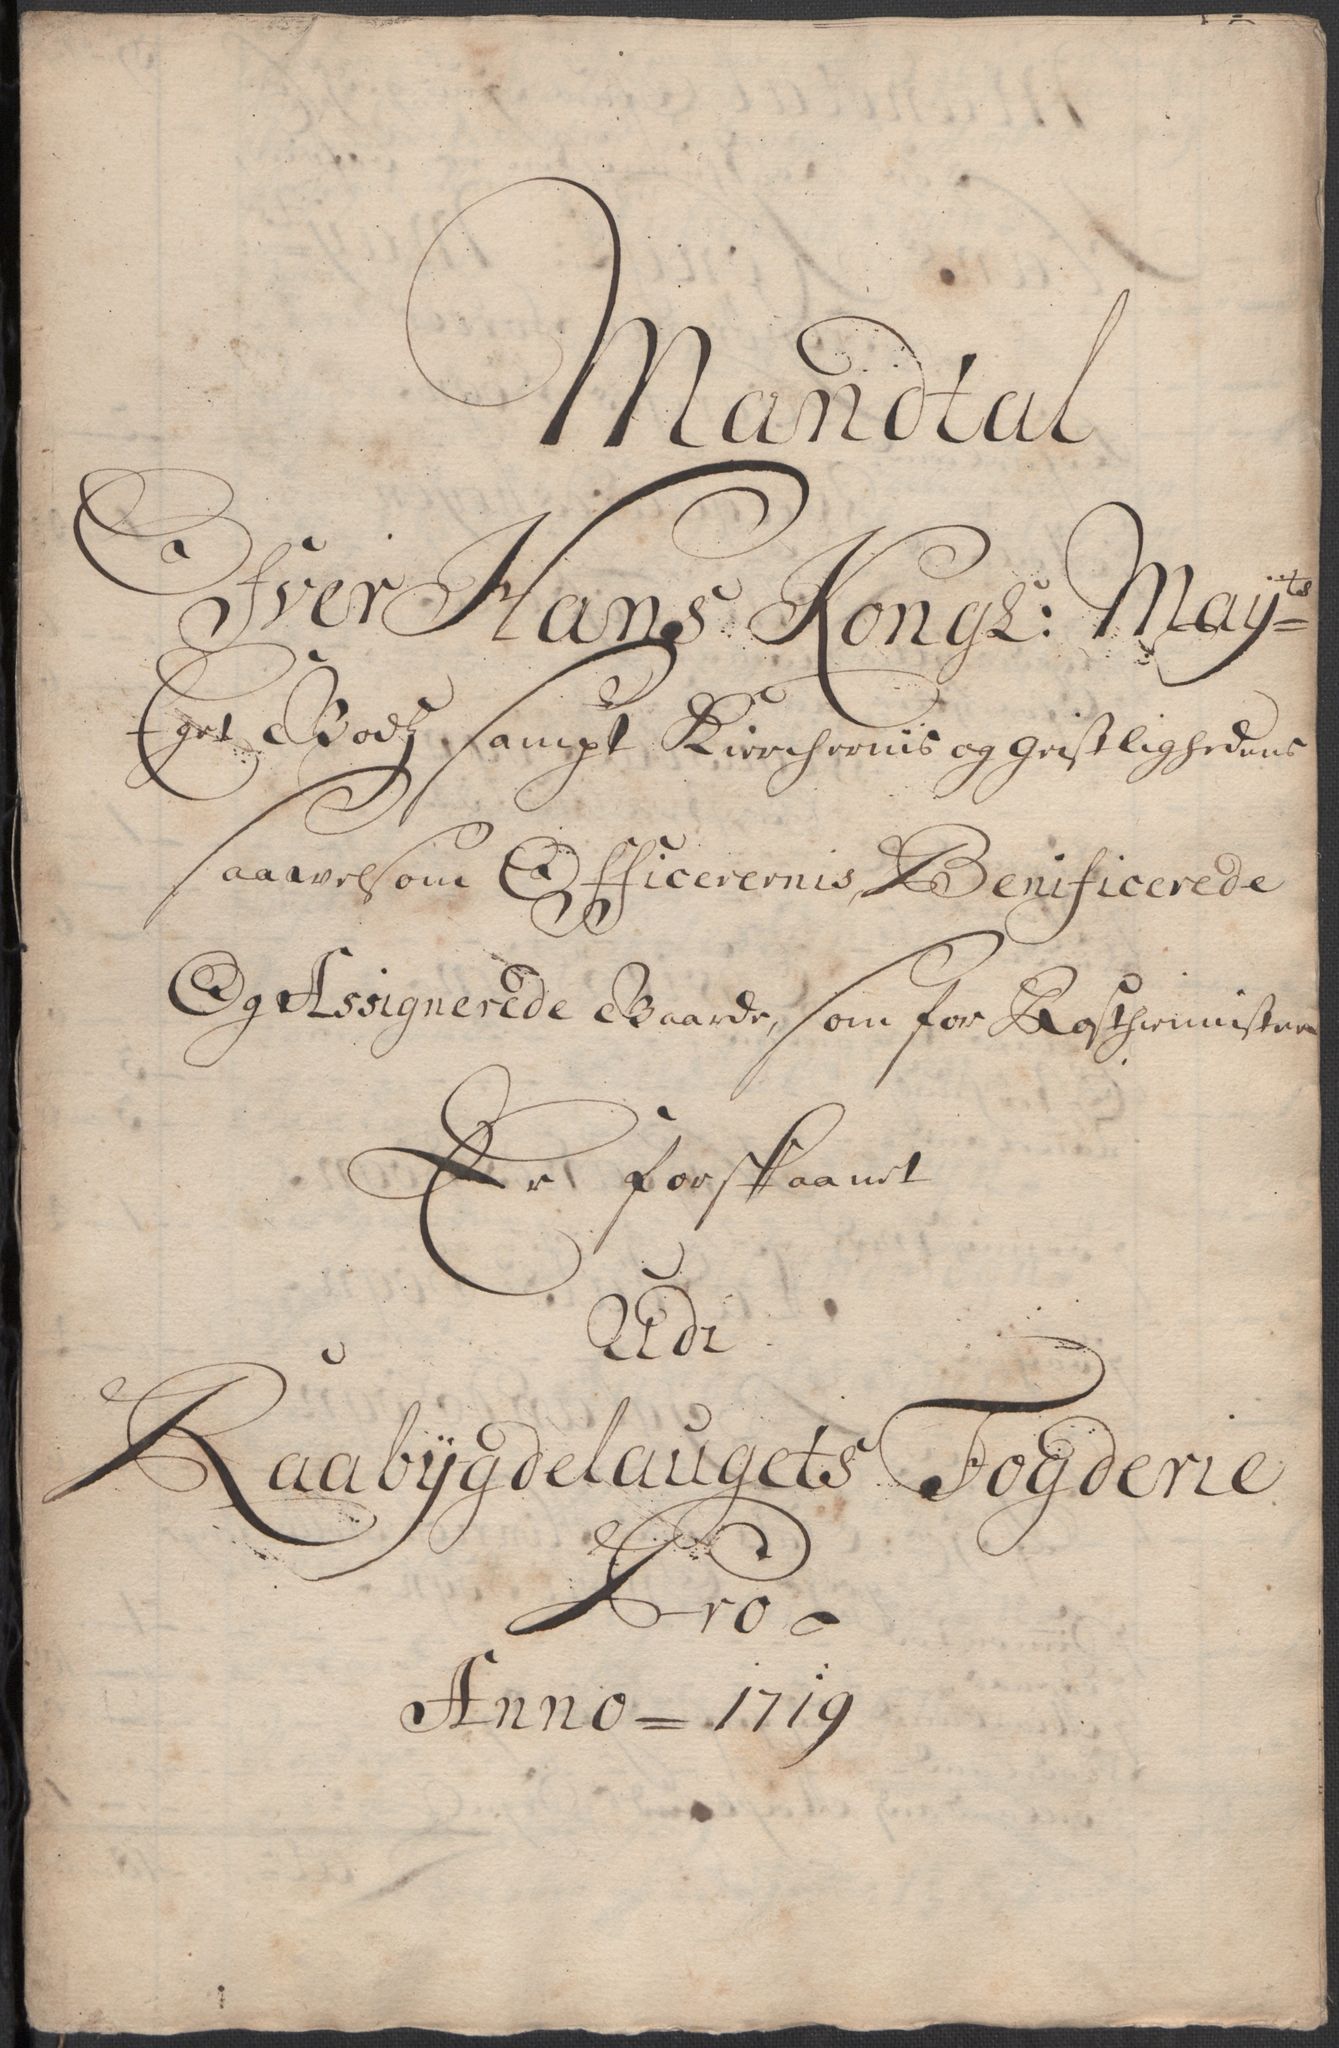 Mandtal
Ofver Hans Kongl: Mayts=
Eget Godtz, sampt Kierchernis og geistlighedens
saavelsom Officerernis, Benificerede
Og Assignerede Gaarde, som for Rosthienniste
Er forskaanet
Udi
Raabÿgdelaugets Fogderie
Pro
Anno = 1719